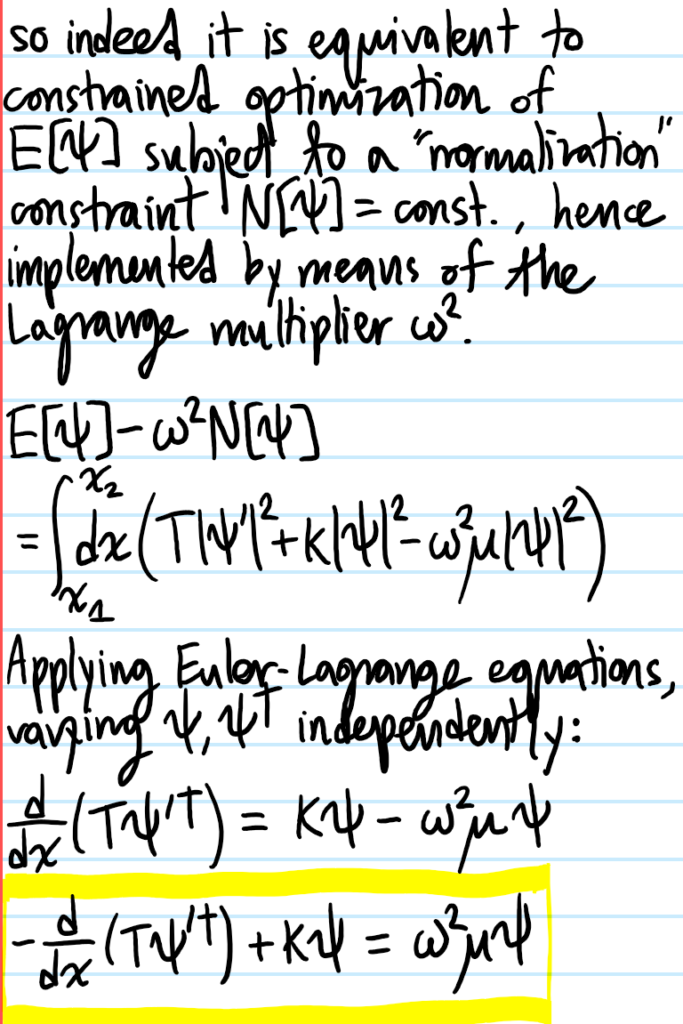 so indeed it is equivalent to
constrained optimization of
E[ψ] subject to a "normalization"
constraint N[ψ] = const., hence
implemented by means of the
Lagrange multiplier ω².
E[ψ]-ω²N[ψ]
= ∫_{x₁}^{x₂} dx(T|ψ'|²+K|ψ|²-ω²μ|ψ|²)
Applying Euler-Lagrange equations,
varying ψ, ψ† independently:
d/dx (Tψ'†) = Kψ - ω²μψ
-d/dx (Tψ'†) + Kψ = ω²μψ